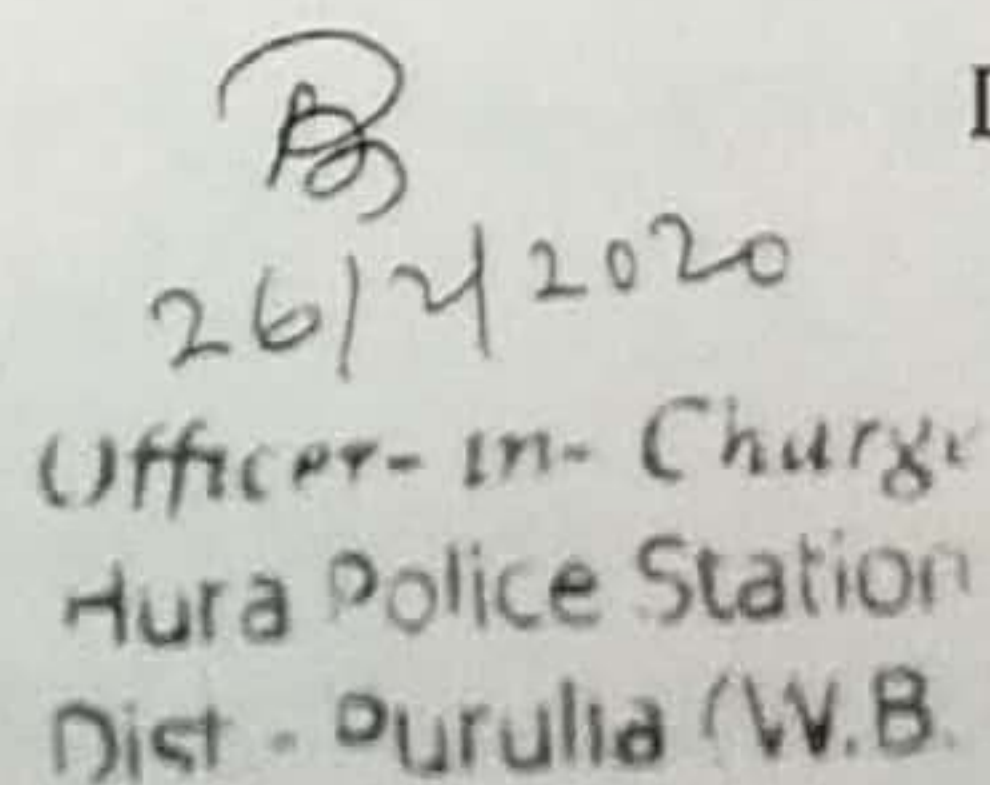 26/2/2020
Officer-in-Charge
Hura Police Station
Dist - Purulia (W.B.